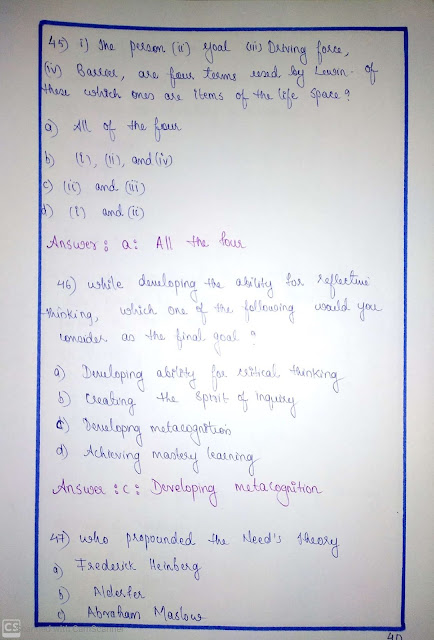 45) i) The person (ii) goal (iii) Driving force,
(iv) Barrier, are four terms used by Lewin. of
these which ones are items of the life space?
a) All of the four
b) (i), (ii), and (iv)
c) (ii) and (iii)
d) (i) and (ii)
Answer: a: All the four
46) while developing the ability for reflective
thinking, which one of the following would you
consider as the final goal?
a) Developing ability for critical thinking
b) Creating the Spirit of inquiry
c) Developing metacognition
d) Achieving mastery learning
Answer: c: Developing metacognition
47) who propounded the Need's theory
a) Frederick Heinberg
b) Alderfer
c) Abraham Maslow
CS
40